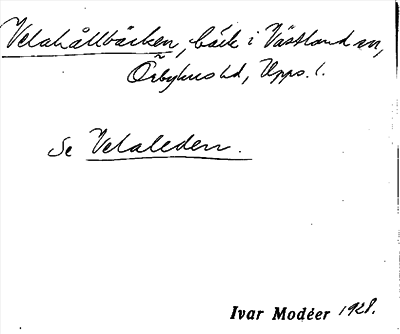 Velahållbäcken, bäck i Västland sn,
Örbyhus hd, Upps. l.
Se Velaleden.
Ivar Modéer 1928.